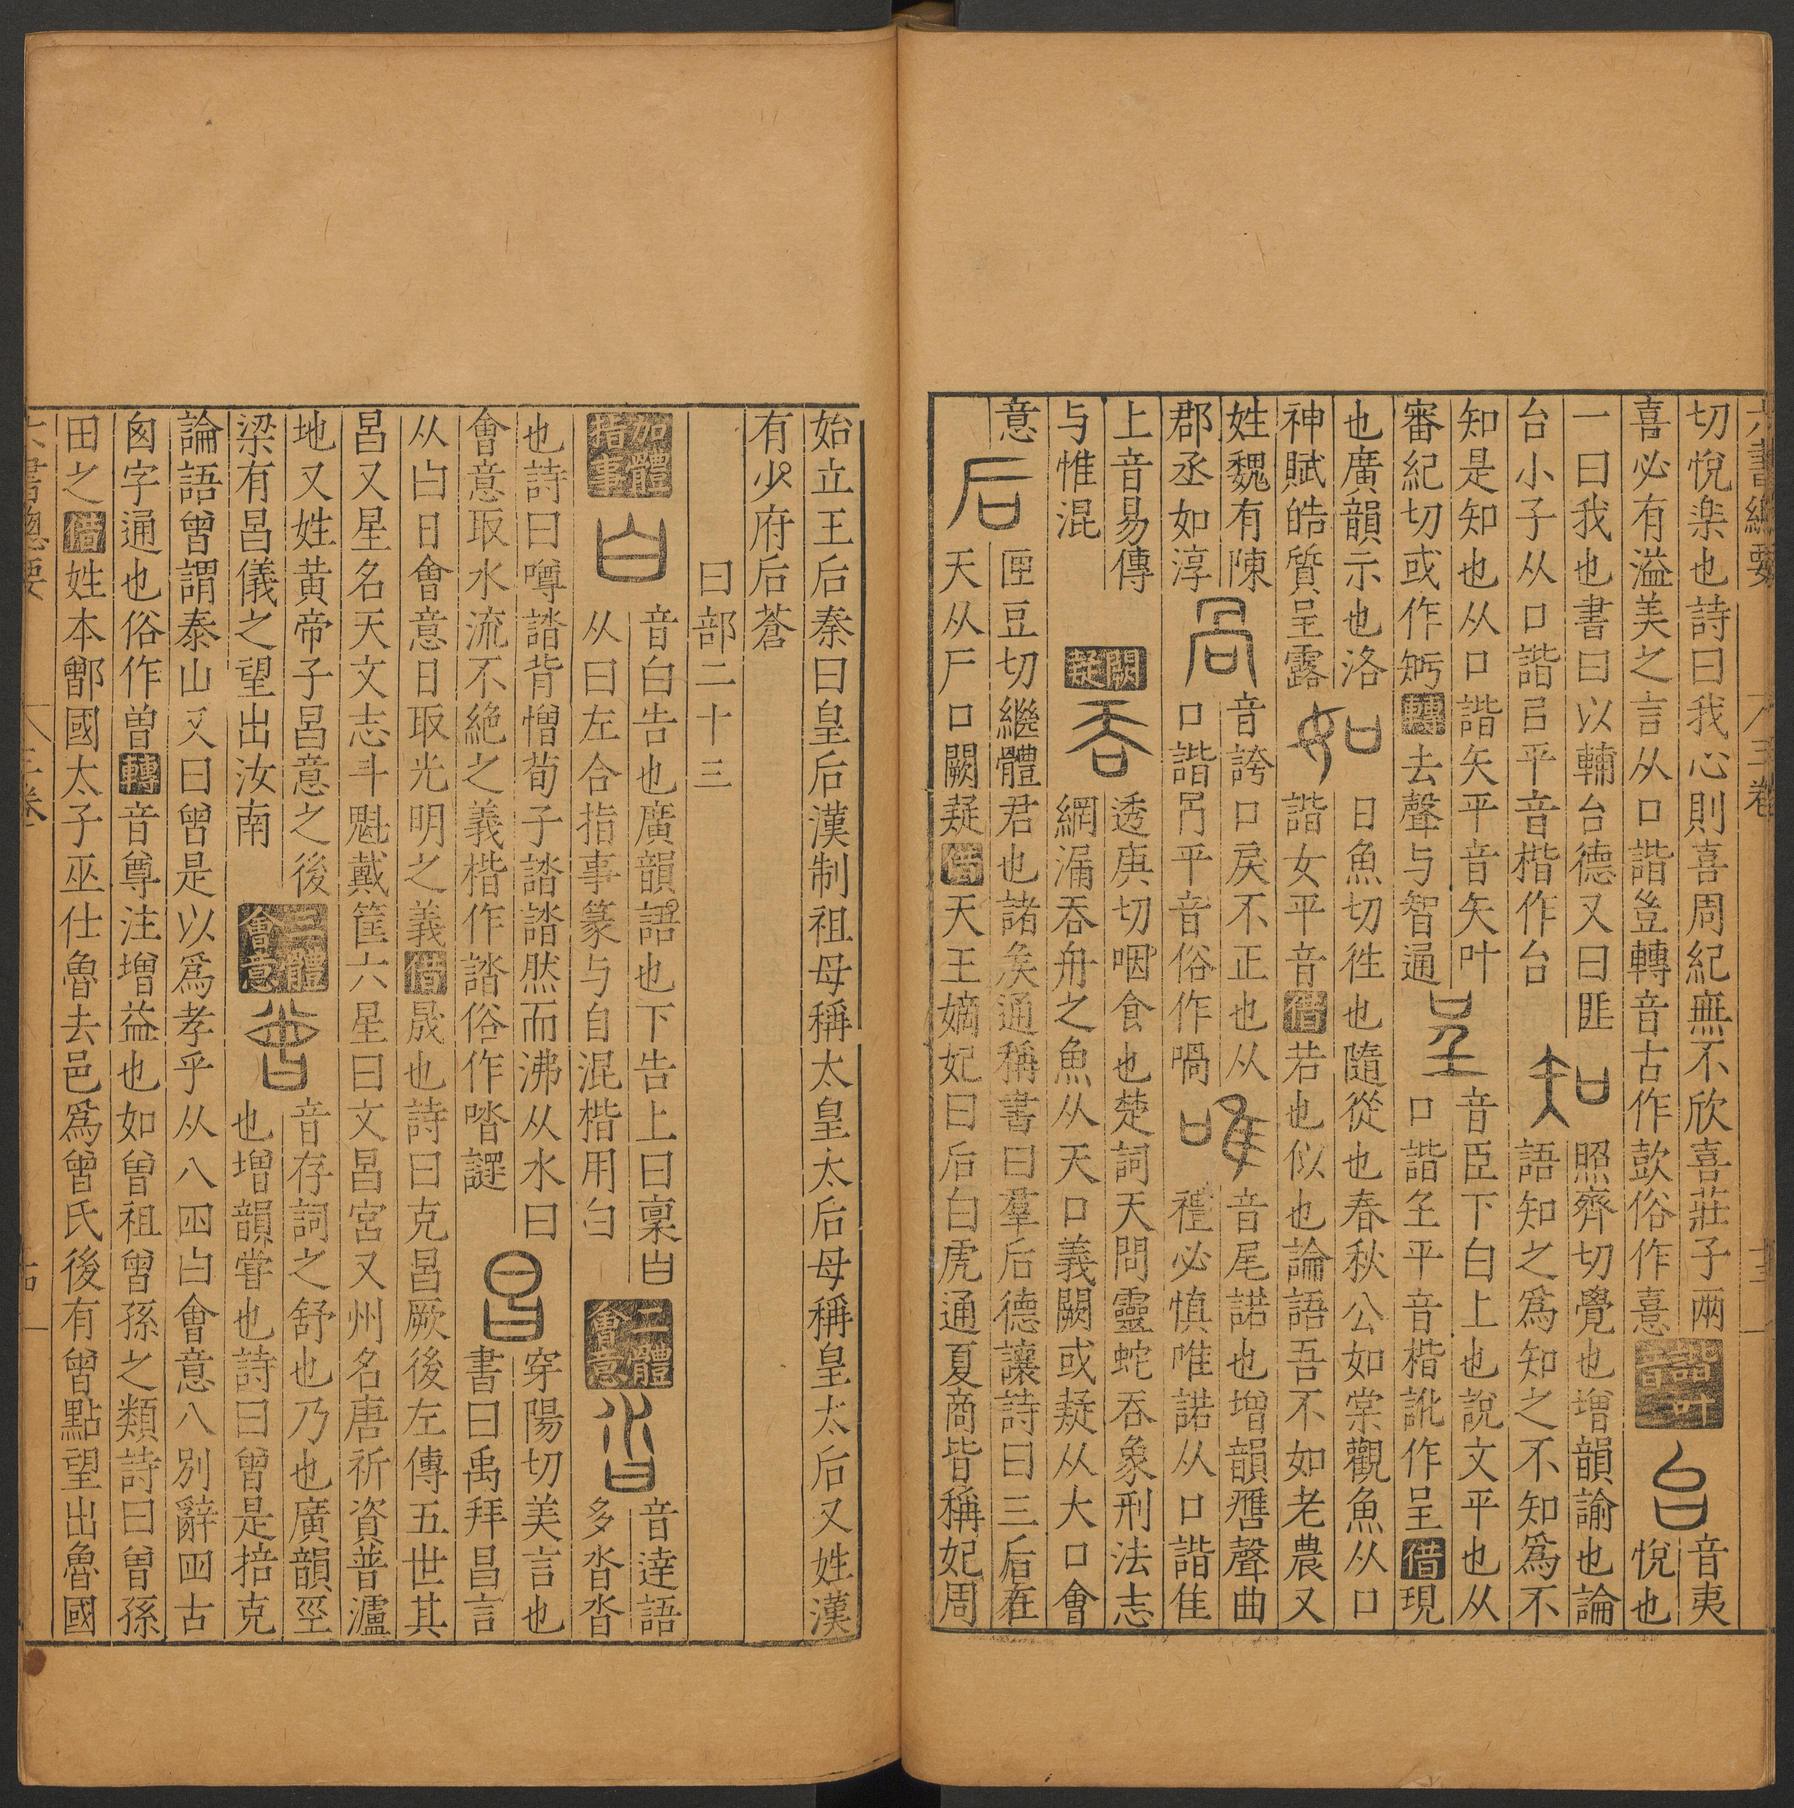 六書總要 三卷 十三
切悅楽也詩曰我心則喜周紀無不欣喜莊子兩 音夷
喜必有溢美之言从口諧豈轉音古作歖俗作憙 諧叶音 台 悅也
一曰我也書曰以輔台德又曰匪 照齊切覺也增韻諭也論
台小子从口諧㠯平音楷作台 知 語知之爲知之不知爲不
知是知也从口諧矢平音矢叶 音臣下白上也說文平也从
審紀切或作 轉去聲与智通 呈 口諧𡈼平音楷訛作呈借現
也廣韻示也洛 日魚切徃也隨從也春秋公如棠觀魚从口
神賦皓質呈露 如 諧女平音借若也似也論語吾不如老農又
姓魏有陳 音誇口戾不正也从 音尾諾也增韻噟聲曲
郡丞如淳 咼 口諧冎平音俗作喎 唯 禮必慎唯諾从口諧隹
上音易傳 透庚切咽食也楚詞天問靈蛇吞象刑法志
与惟混 闕疑 吞 網漏吞舟之魚从天口義闕或疑从大口會
意 匣豆切繼體君也諸矦通稱書曰羣后德讓詩曰三后在
后 天从𠂆口闕疑借天王嫡妃曰后白虎通夏商皆稱妃周
始立王后秦曰皇后漢制祖母稱太皇太后母稱皇太后又姓漢
有少府后蒼
曰部二十三
加體指事 曰 音白告也廣韻語也下告上曰稟曰 音達語
从曰左合指事篆与自混楷用曰 二體會意 沓 多沓沓
也詩曰噂誻背憎荀子誻誻然而沸从水曰 穿陽切美言也
會意取水流不絶之義楷作誻俗作喒譯 昌 書曰禹拜昌言
从曰日會意日取光明之義借晟也詩曰克昌厥後左傳五世其
昌又星名天文志斗魁戴筐六星曰文昌宮又州名唐祈資普瀘
地又姓黄帝子昌意之後 三體會意 音存詞之舒也乃也廣韻巠
梁有昌儀之望出汝南 曾 也增韻甞也詩曰曾是掊克
論語曾謂泰山又曰曾是以爲孝乎从八𡆧曰會意八別辭𡆧古
囪字通也俗作曽轉音尊注增益也如曽祖曾孫之類詩曰曽孫
田之借姓本鄫國太子巫仕魯去邑爲曾氏後有曾點望出魯國
六書總要 三卷